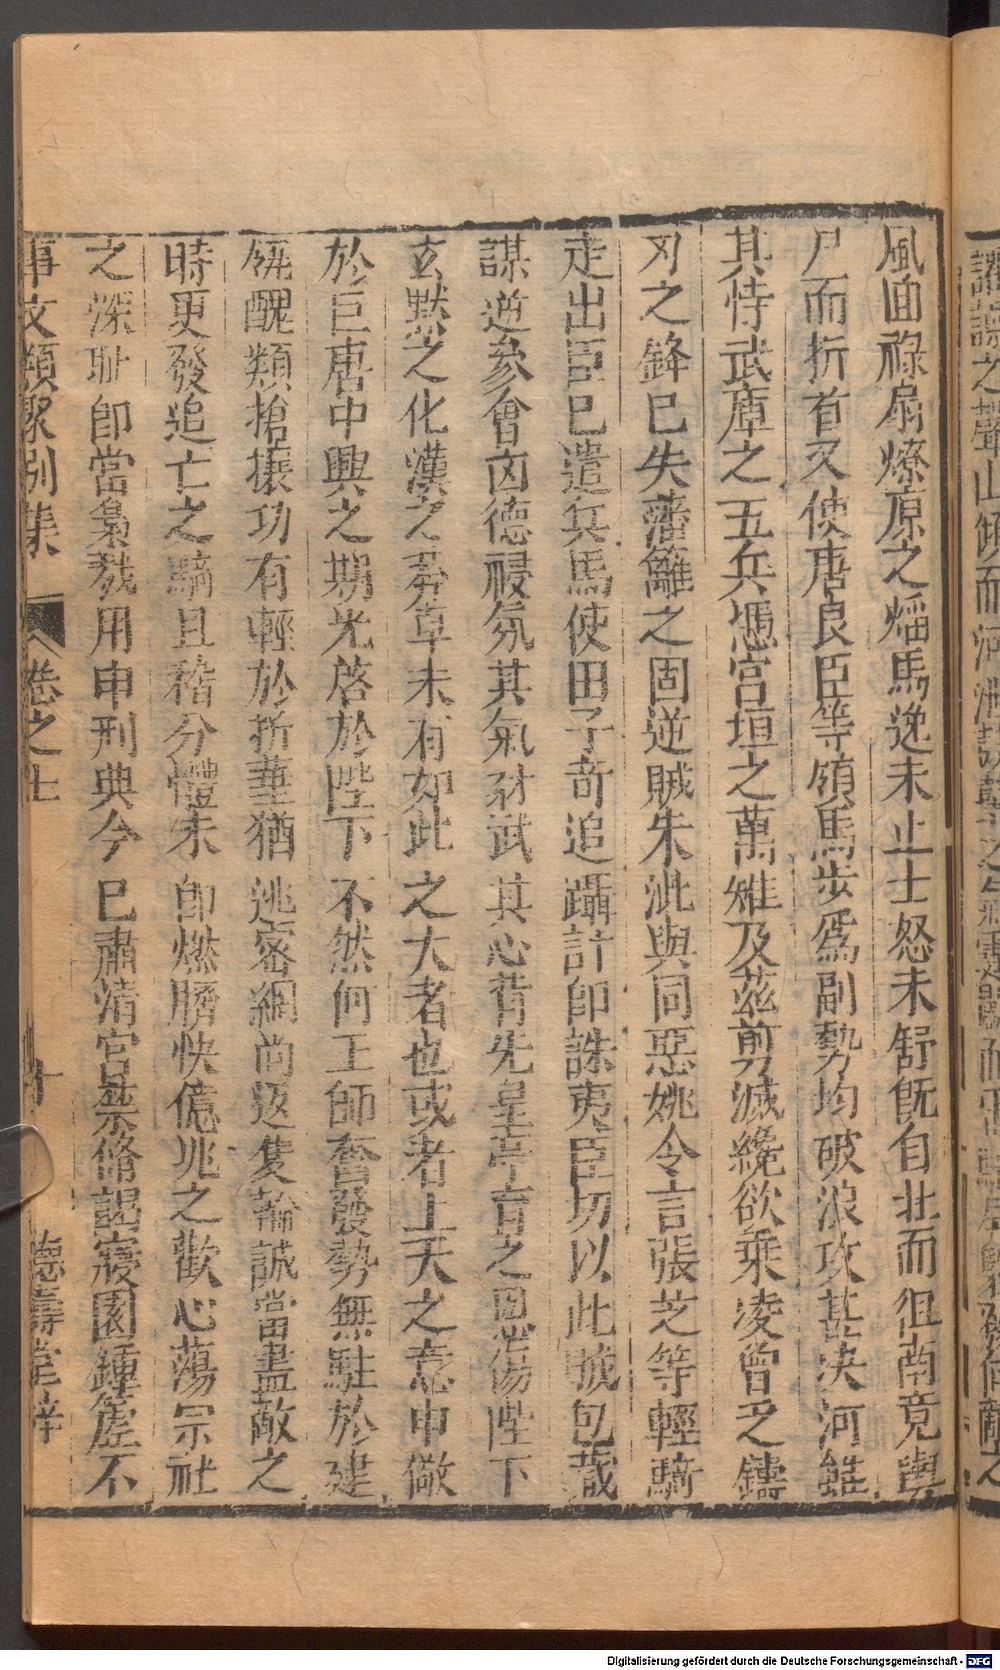 風回祿扇燎原之熖馬逸未止士怒未舒旣自北而徂南竟輿
尸而折首又使唐良臣等領馬步爲副勢均破浪攻甚決河雖
其恃武庫之五兵憑宮垣之萬雉及茲剪滅纔欲乘凌曾乏鑄
刃之鋒已失藩籬之固逆賊朱泚與同惡姚令言張芝等輕騎
走出臣已遣兵馬使田子奇追躡計卽誅夷臣切以此賊包藏
謀逆參會凶德祲氛其氣豺武其心背先皇亭育之恩蕩陛下
玄默之化漢之莽卓未有如此之大者也或者上天之意申儆
於巨唐中興之期光啓於陛下不然何王師奮發勢無駐於建
瓴醜類搶攘功有輕於折菙猶逃密網尚返隻輪誠當盡敵之
時更發追亡之騎且稽分體未卽燃臍快億兆之歡心蕩宗社
之深耻卽當梟戮用申刑典今已肅清宮禁脩謁寢園鍾簴不
事文類聚別集 卷之七 十 德壽堂梓
Digitalisierung gefördert durch die Deutsche Forschungsgemeinschaft - DFG